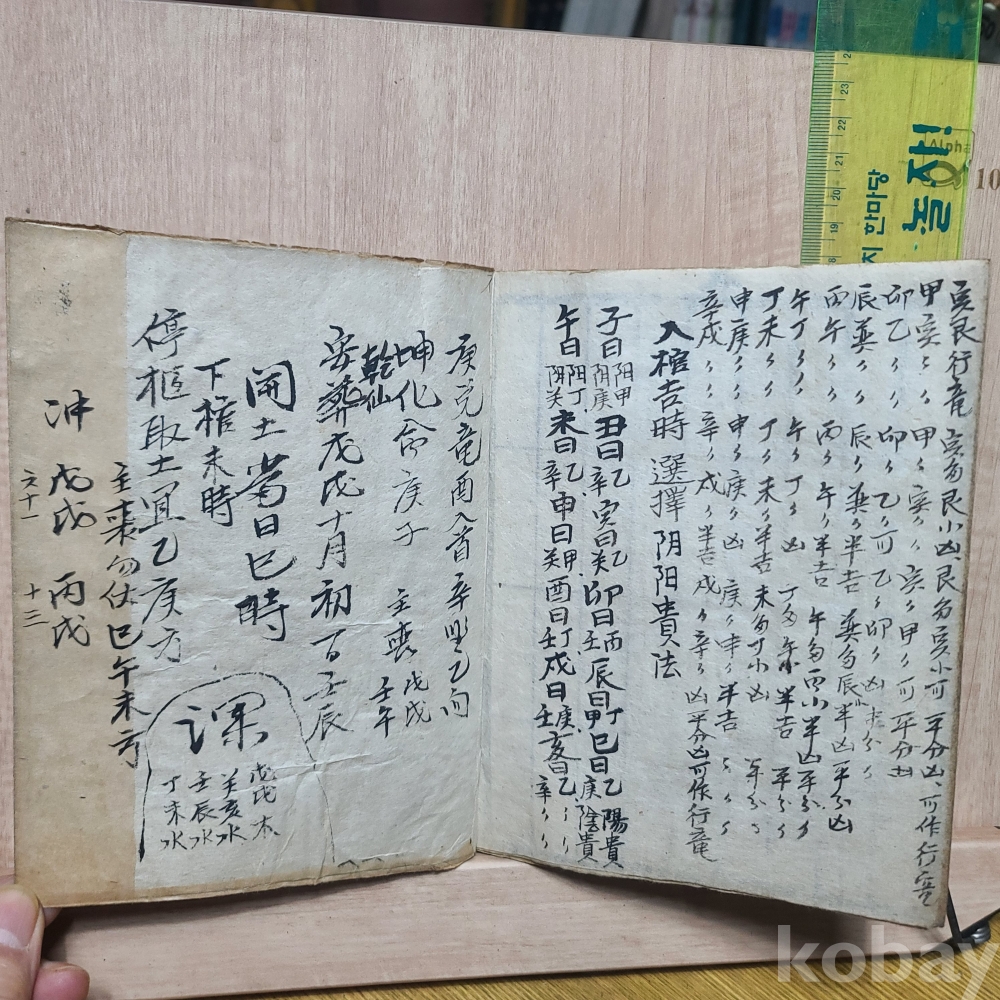 亥艮行竜 亥多艮小凶 艮多亥小可 平分凶 可作行竜
甲亥〃〃 甲〃亥〃可 亥〃甲〃可 平分凶
卯乙〃〃 卯〃乙〃可 乙〃卯〃凶
辰巽〃〃 辰〃巽〃半吉 巽多辰小半凶 平分凶
丙午〃〃 丙〃午〃半吉 午多丙小半凶 平分〃
午丁〃〃 午〃丁〃凶 丁多午小半吉 平分〃
丁未〃〃 丁〃未〃半吉 未多丁小凶
申庚〃〃 申〃庚〃凶 庚〃申〃半吉
辛戌〃〃 辛〃戌〃半吉 戌〃辛〃凶 半分凶 可作行竜
入棺吉時 選擇 阴阳貴法
子日 阳甲 阴庚 丑日 乙辛 寅日 乙癸 卯日 丙壬 辰日 丁甲 巳日 乙庚 陽貴 陰貴
午日 阳丁 阴癸 未日 乙辛 申日 甲癸 酉日 丁壬 戌日 庚壬 亥日 乙辛 〃〃
庚兌竜酉入首辛坐乙向
坤化命庚子 主喪 戊戌 壬午
乾仙
安葬戊戌十月初一日壬辰
開土當日巳時
下棺未時
停柩取土宜乙庚方
主喪勿伏巳午未方
冲 戊戌 丙戌
六十一 十三
課
戊戌木
癸亥水
壬辰水
丁未水
놀자!
지 한마당
Alpha
10
24
23
22
21
20
19
18
kobay